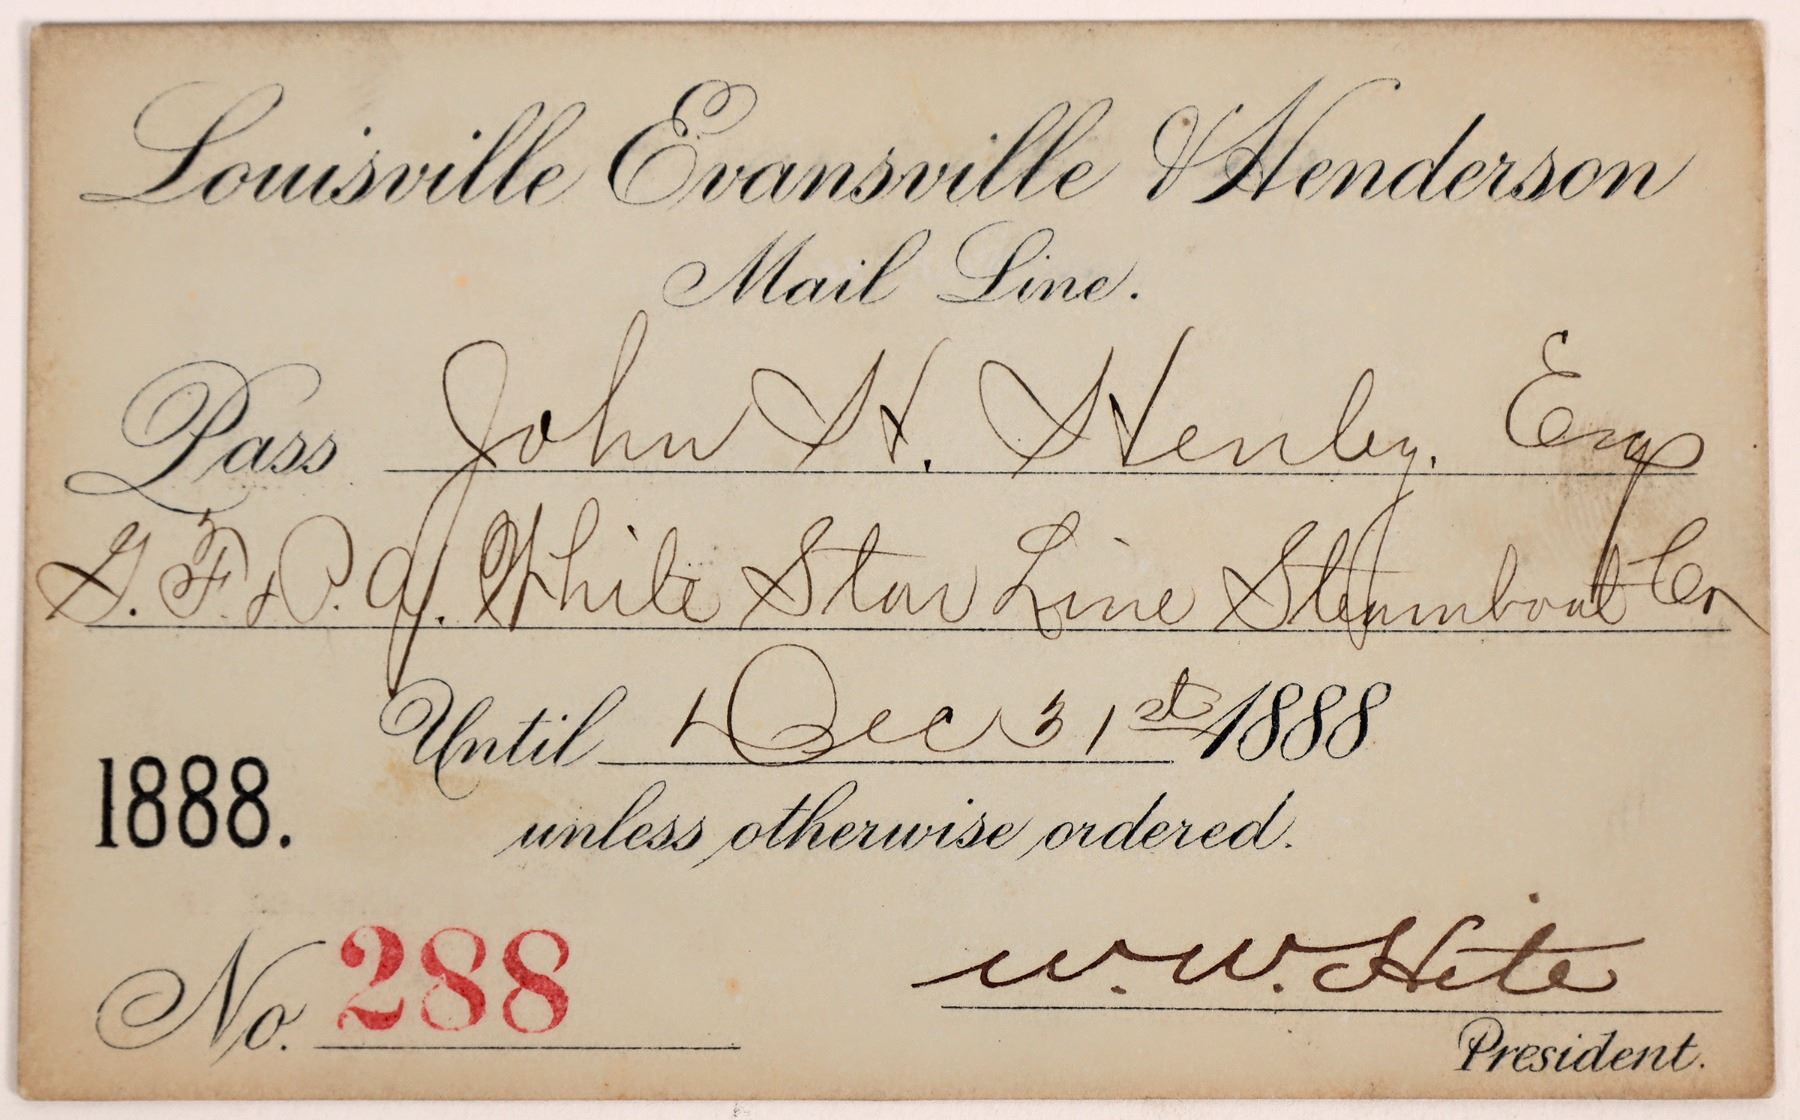 Louisville Evansville & Henderson
Mail Line.
Pass John H. Henley. Esq
G. F. & P. A. White Star Line Steamboat Co
Until Dec 31st 1888
1888.
unless otherwise ordered.
No. 288
W. W. Hite
President.